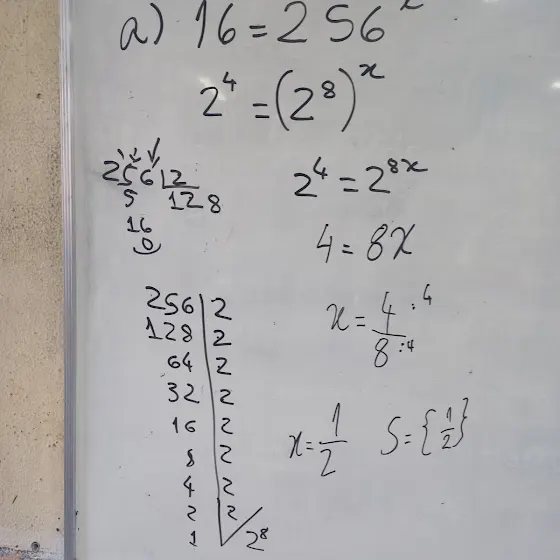 a) 16 = 256^x
2^4 = (2^8)^x
256 | 2
5 128
16
0
2^4 = 2^8x
4 = 8x
x = 4/8 :4 :4
x = 1/2 S = {1/2}
256 | 2
128 | 2
64 | 2
32 | 2
16 | 2
8 | 2
4 | 2
2 | 2
1 | 2^8